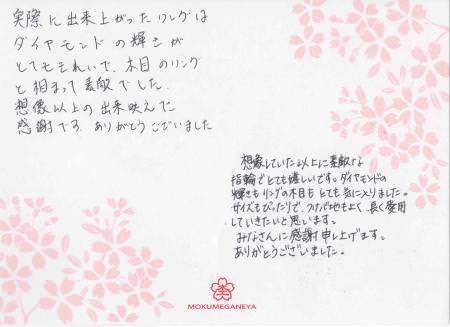 実際に出来上がったリングは
ダイヤモンドの輝きが
とてもきれいで、木目のリング
と相まって素敵でした。
想像以上の出来映えで
感謝です。ありがとうございました
想像していた以上に素敵な
指輪でとても嬉しいです。ダイヤモンドの
輝きもリングの木目もとても気に入りました。
サイズもぴったりで、つけ心地もよく長く愛用
していきたいと思います。
みなさんに感謝申し上げます。
ありがとうございました。
MOKUMEGANEYA